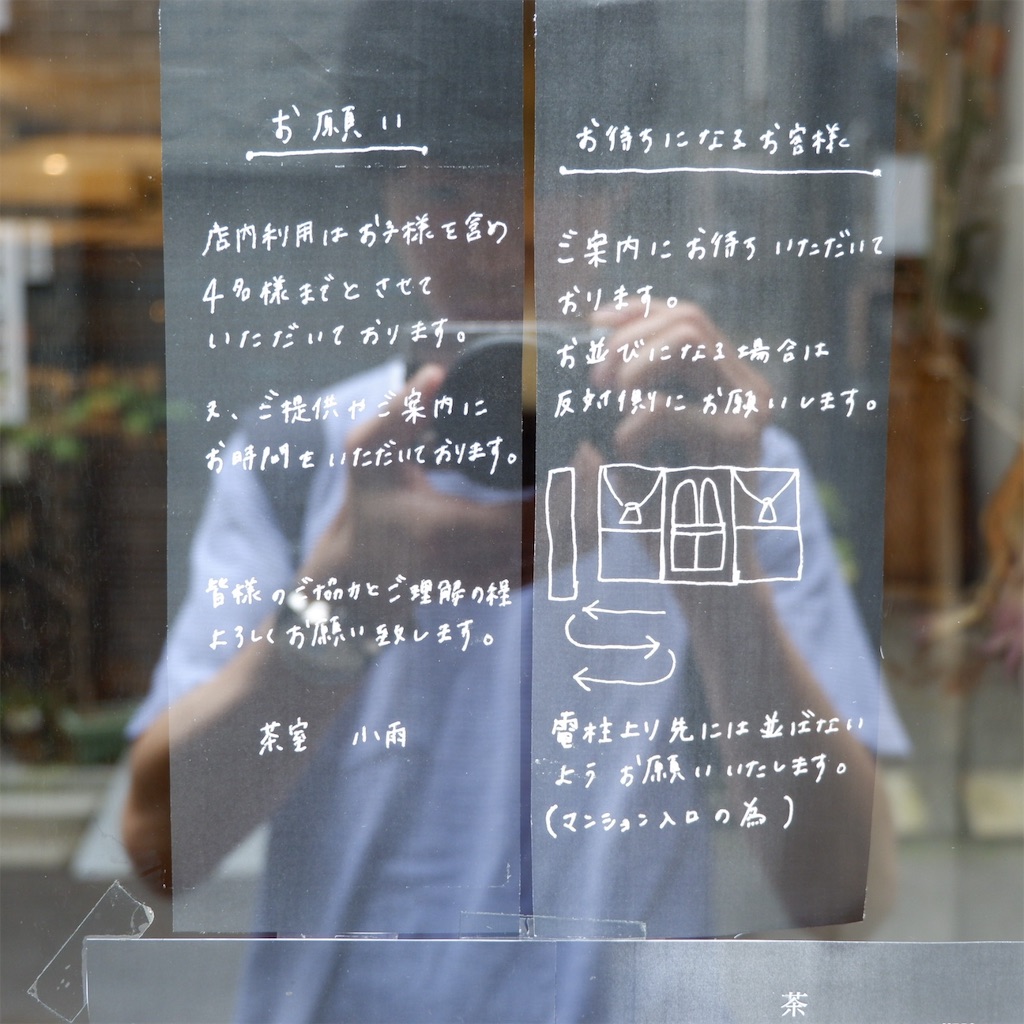 お願い
店内利用はお子様を含め
4名様までとさせて
いただいております。
又、ご提供やご案内に
お時間をいただいております。
皆様のご協力とご理解の程
よろしくお願い致します。
茶室 小雨
お待ちになるお客様
ご案内にお待ちいただいて
おります。
お並びになる場合は
反対側にお願いします。
電柱より先には並ばない
ようお願いいたします。
(マンション入口の為)
茶